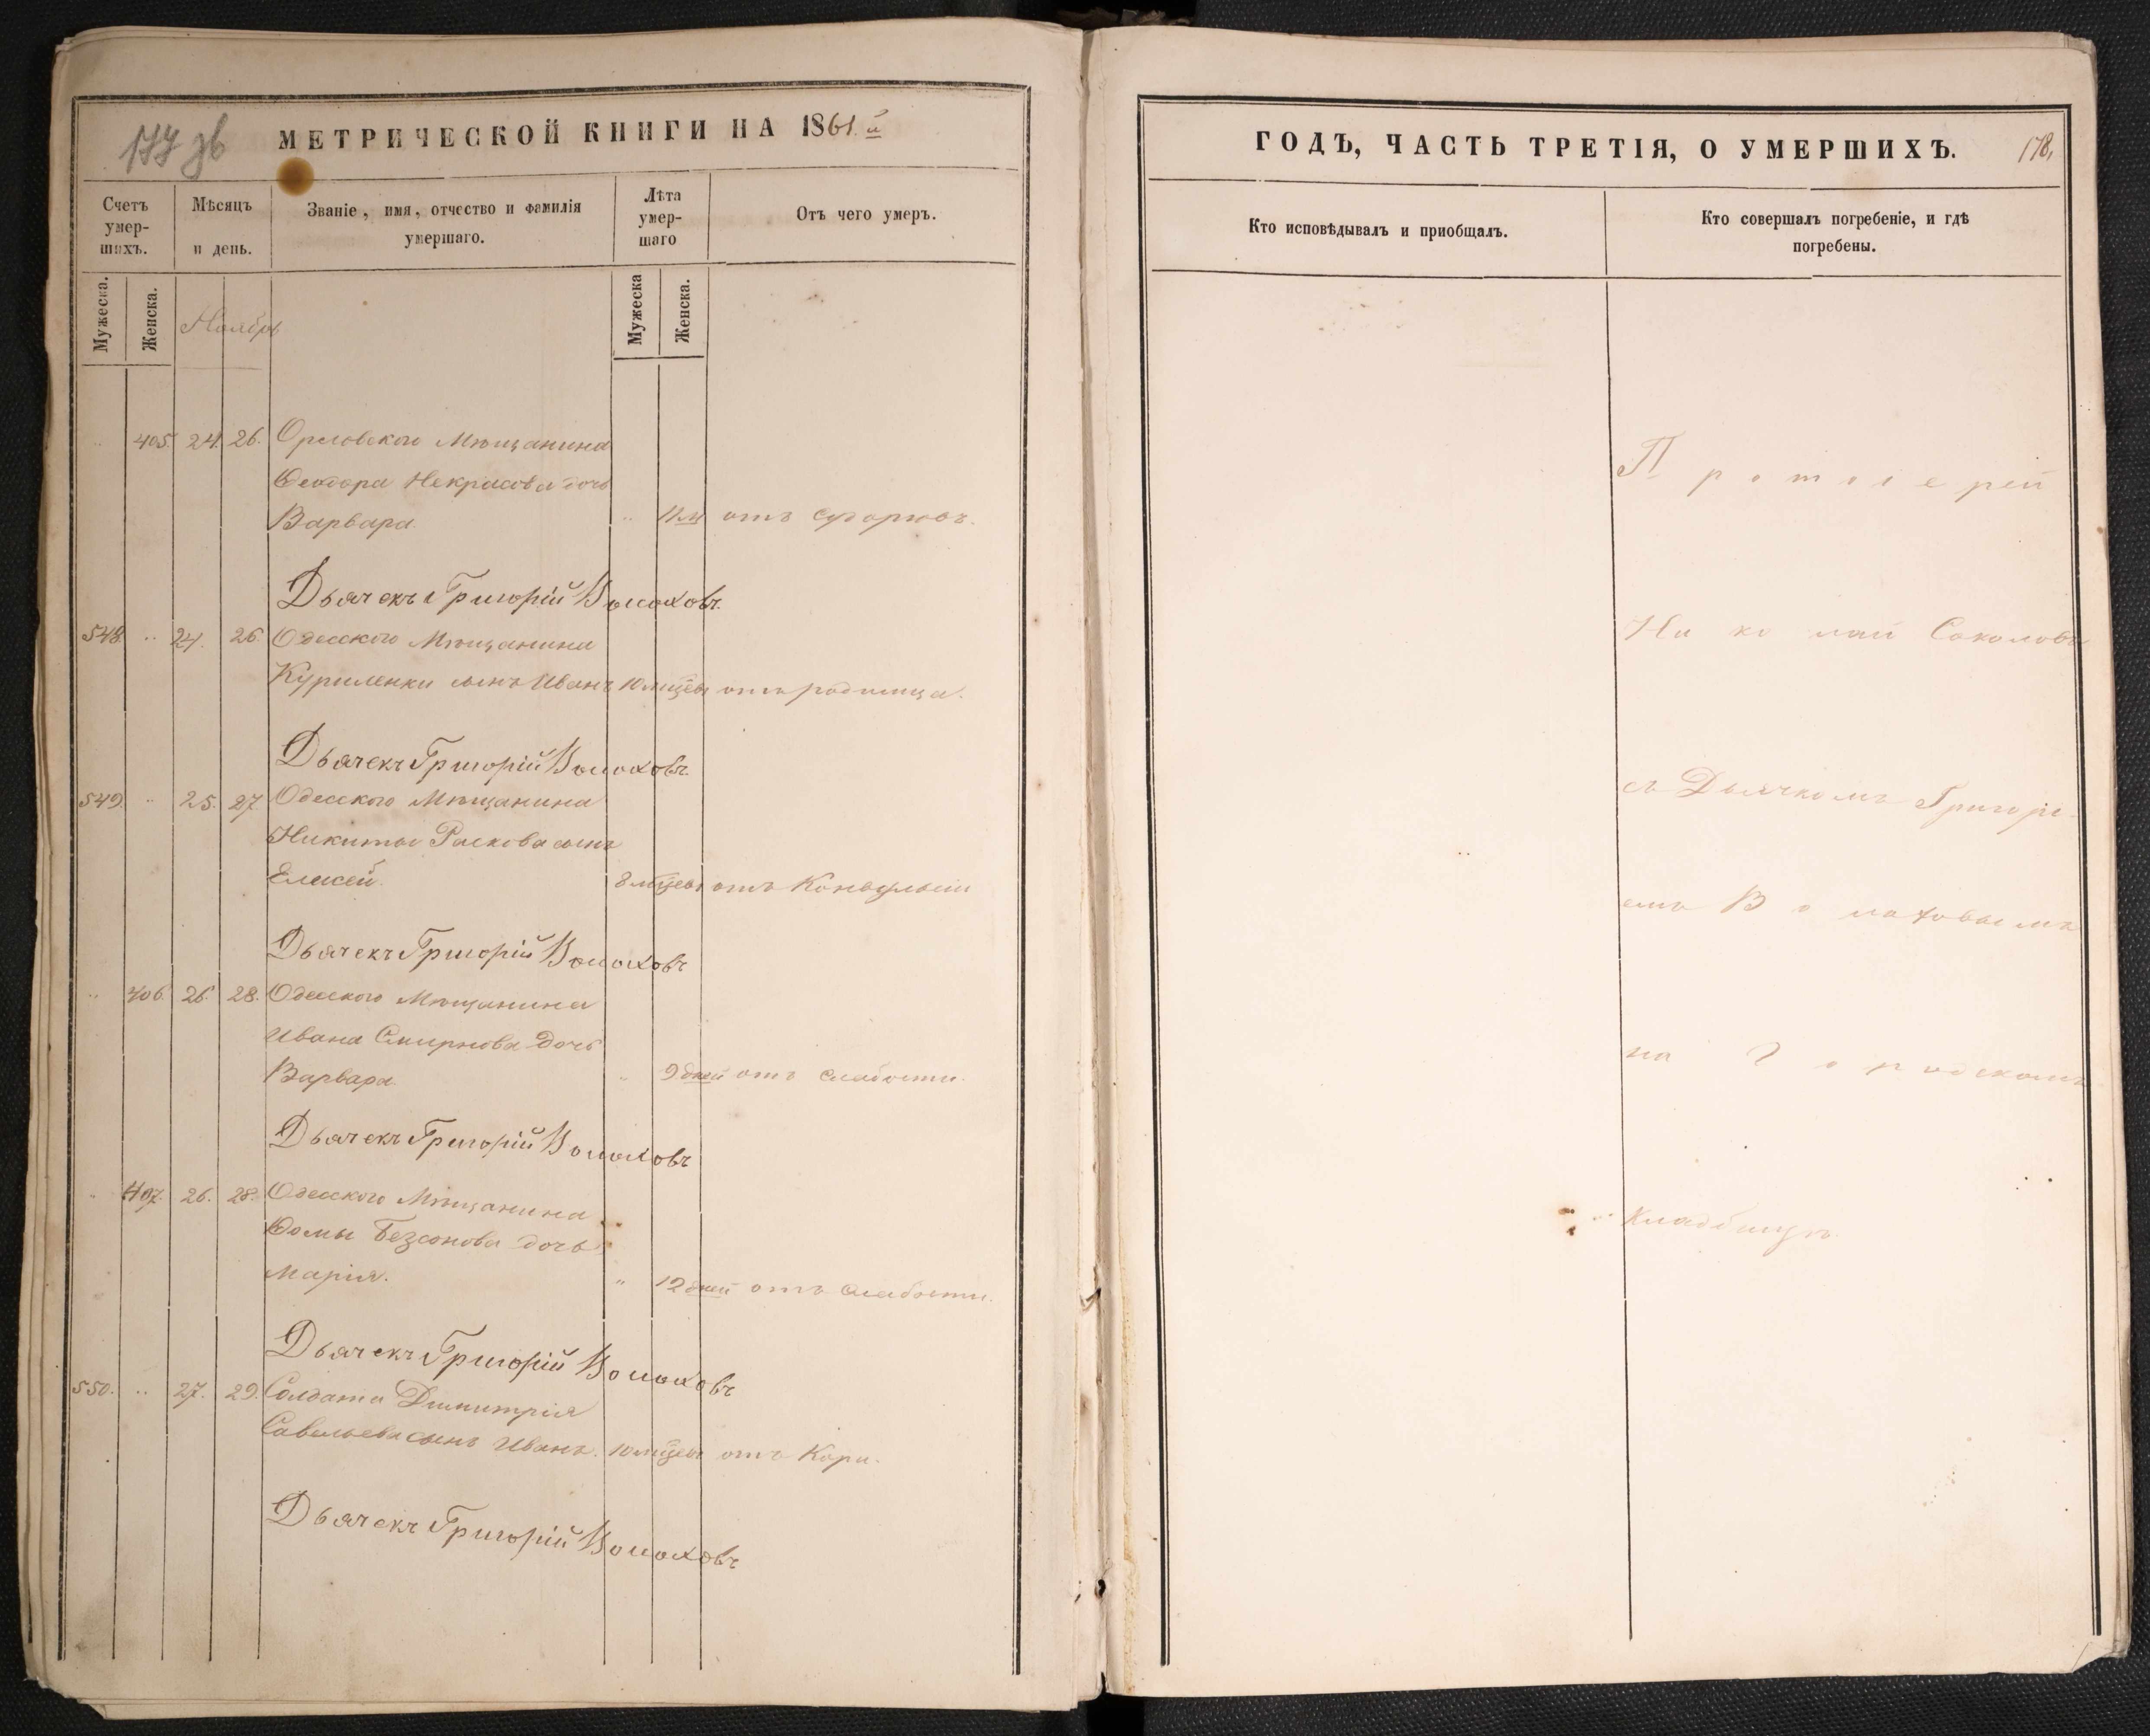 177 зв
МЕТРИЧЕСКОЙ КНИГИ НА 1861.й
Счетъ умер-шихъ.
Мѣсяцъ и день.
Званіе, имя, отчество и фамилія умершаго.
Лѣта умер-шаго
Отъ чего умеръ.
Мужеска.
Женска.
Ноябрь
Мужеска
Женска.
405. 24. 26. Орловскаго Мѣщанина
Ѳеодора Некрасова дочь
Варвара. 11 м отъ судорогъ.
Дьячекъ Григорій Волоховъ.
548. 24. 26. Одесскаго Мѣщанина
Куриленки сынъ Иванъ 10 мцевъ отъ родимца.
Дьячекъ Григорій Волоховъ.
549. 25. 27. Одесскаго Мѣщанина
Никиты Раскова сынъ
Елисей. 8 мцевъ отъ Конвульсіи
Дьячекъ Григорій Волоховъ
406. 26. 28. Одесскаго Мѣщанина
Ивана Смирнова дочь
Варвара. 9 дней отъ слабости.
Дьячекъ Григорій Волоховъ
407. 26. 28. Одесскаго Мѣщанина
Ѳомы Безсонова дочь
Марія. 12 дней отъ слабости.
Дьячекъ Григорій Волоховъ
550. 27. 29. Солдата Димитрія
Савельева сынъ Иванъ. 10 мцевъ отъ Кори.
Дьячекъ Григорій Волоховъ
ГОДЪ, ЧАСТЬ ТРЕТІЯ, О УМЕРШИХЪ. 178.
Кто исповѣдывалъ и приобщалъ.
Кто совершалъ погребеніе, и гдѣ погребены.
Протоіерей
Николай Соколовъ
съ Дьячкомъ Григорі-
емъ Волоховымъ
на Городскомъ
Кладбищѣ.